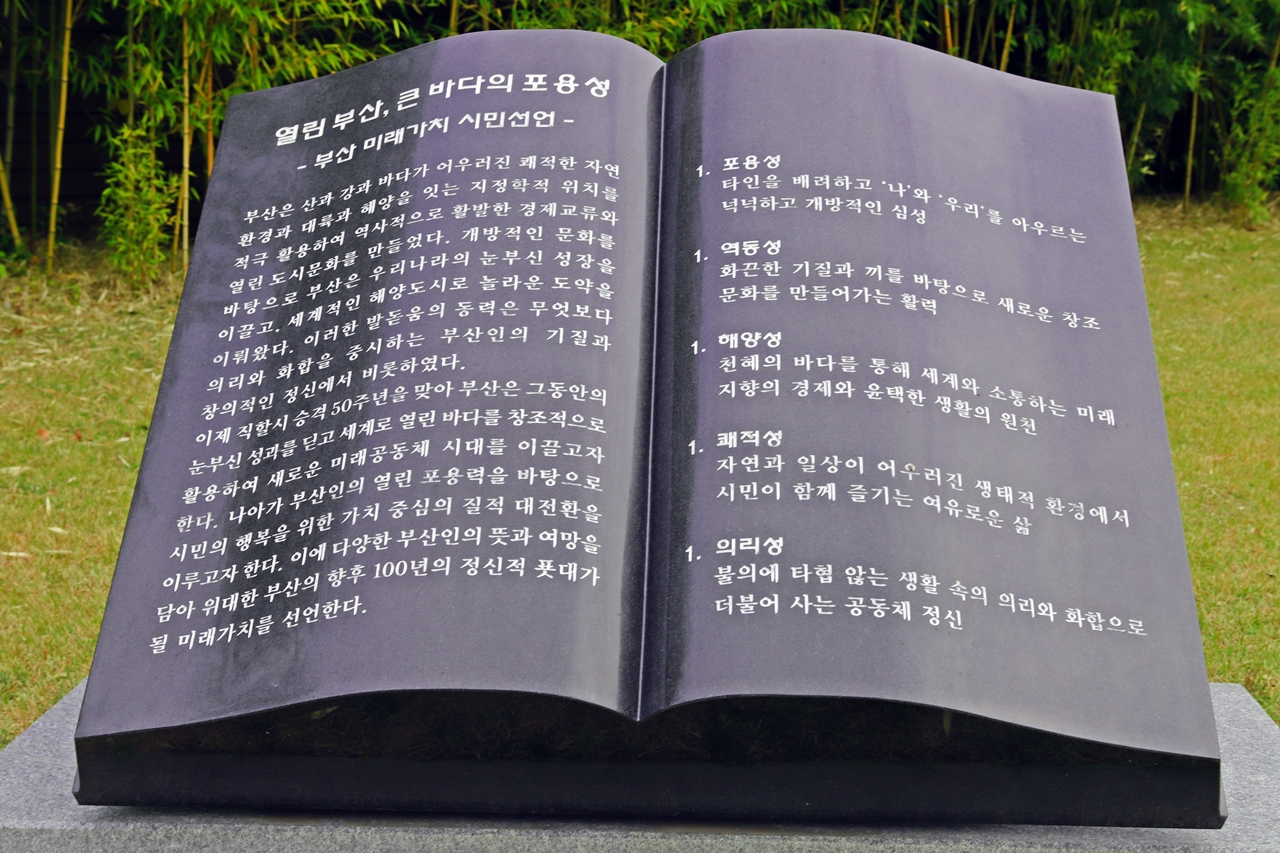 열린 부산, 큰 바다의 포용성
- 부산 미래가치 시민선언 -
부산은 산과 강과 바다가 어우러진 쾌적한 자연
환경과 대륙과 해양을 잇는 지정학적 위치를
적극 활용하여 역사적으로 활발한 경제교류와
열린 도시문화를 만들었다. 개방적인 문화를
바탕으로 부산은 우리나라의 눈부신 성장을
이끌고, 세계적인 해양도시로 놀라운 도약을
이뤄왔다. 이러한 발돋움의 동력은 무엇보다
의리와 화합을 중시하는 부산인의 기질과
창의적인 정신에서 비롯하였다.
이제 직할시 승격 50주년을 맞아 부산은 그동안의
눈부신 성과를 딛고 세계로 열린 바다를 창조적으로
활용하여 새로운 미래공동체 시대를 이끌고자
한다. 나아가 부산인의 열린 포용력을 바탕으로
시민의 행복을 위한 가치 중심의 질적 대전환을
이루고자 한다. 이에 다양한 부산인의 뜻과 여망을
담아 위대한 부산의 향후 100년의 정신적 푯대가
될 미래가치를 선언한다.
1. 포용성
타인을 배려하고 '나'와 '우리'를 아우르는
넉넉하고 개방적인 심성
1. 역동성
화끈한 기질과 끼를 바탕으로 새로운 창조
문화를 만들어가는 활력
1. 해양성
천혜의 바다를 통해 세계와 소통하는 미래
지향의 경제와 윤택한 생활의 원천
1. 쾌적성
자연과 일상이 어우러진 생태적 환경에서
시민이 함께 즐기는 여유로운 삶
1. 의리성
불의에 타협 않는 생활 속의 의리와 화합으로
더불어 사는 공동체 정신